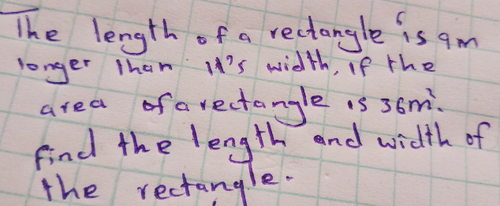 The length of a rectangle is 9m
longer than it's width, if the
area of a rectangle is 36m².
find the length and width of
the rectangle.